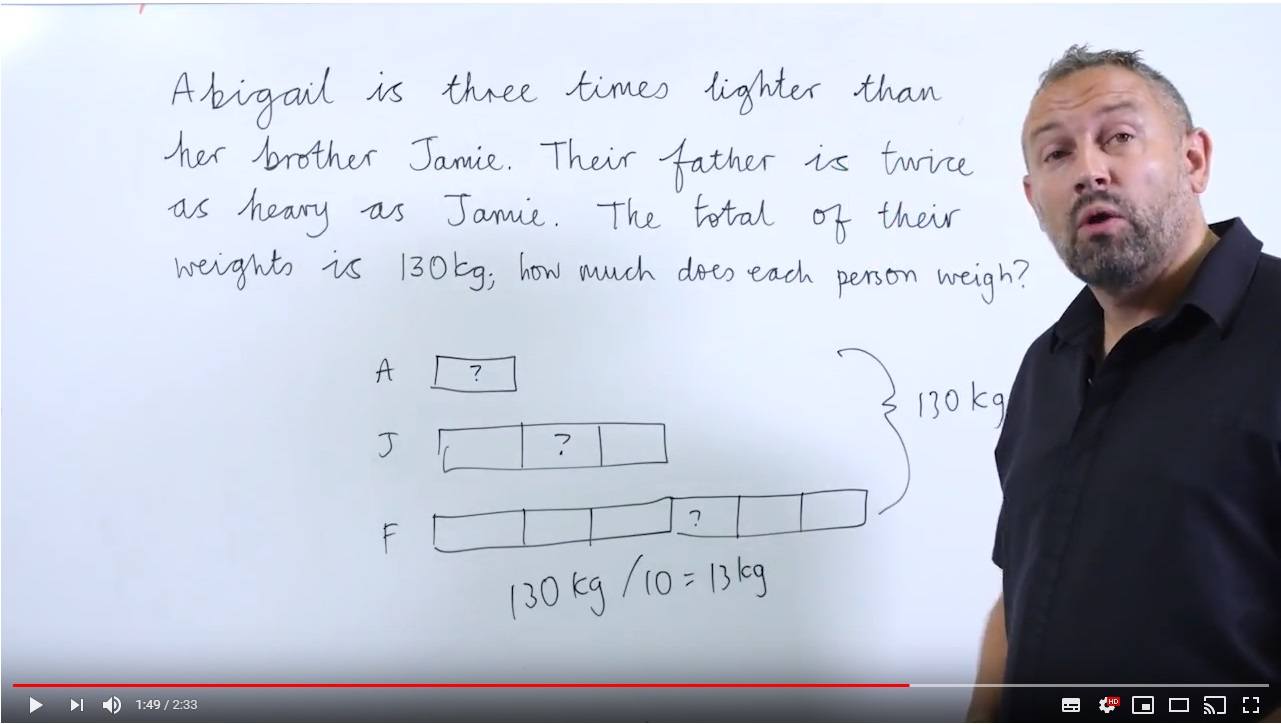 Abigail is three times lighter than
her brother Jamie. Their father is twice
as heavy as Jamie. The total of their
weights is 130kg; how much does each person weigh?
A ?
J ?
130 kg
F ?
130 kg / 10 = 13 kg
1:49 / 2:33
HD